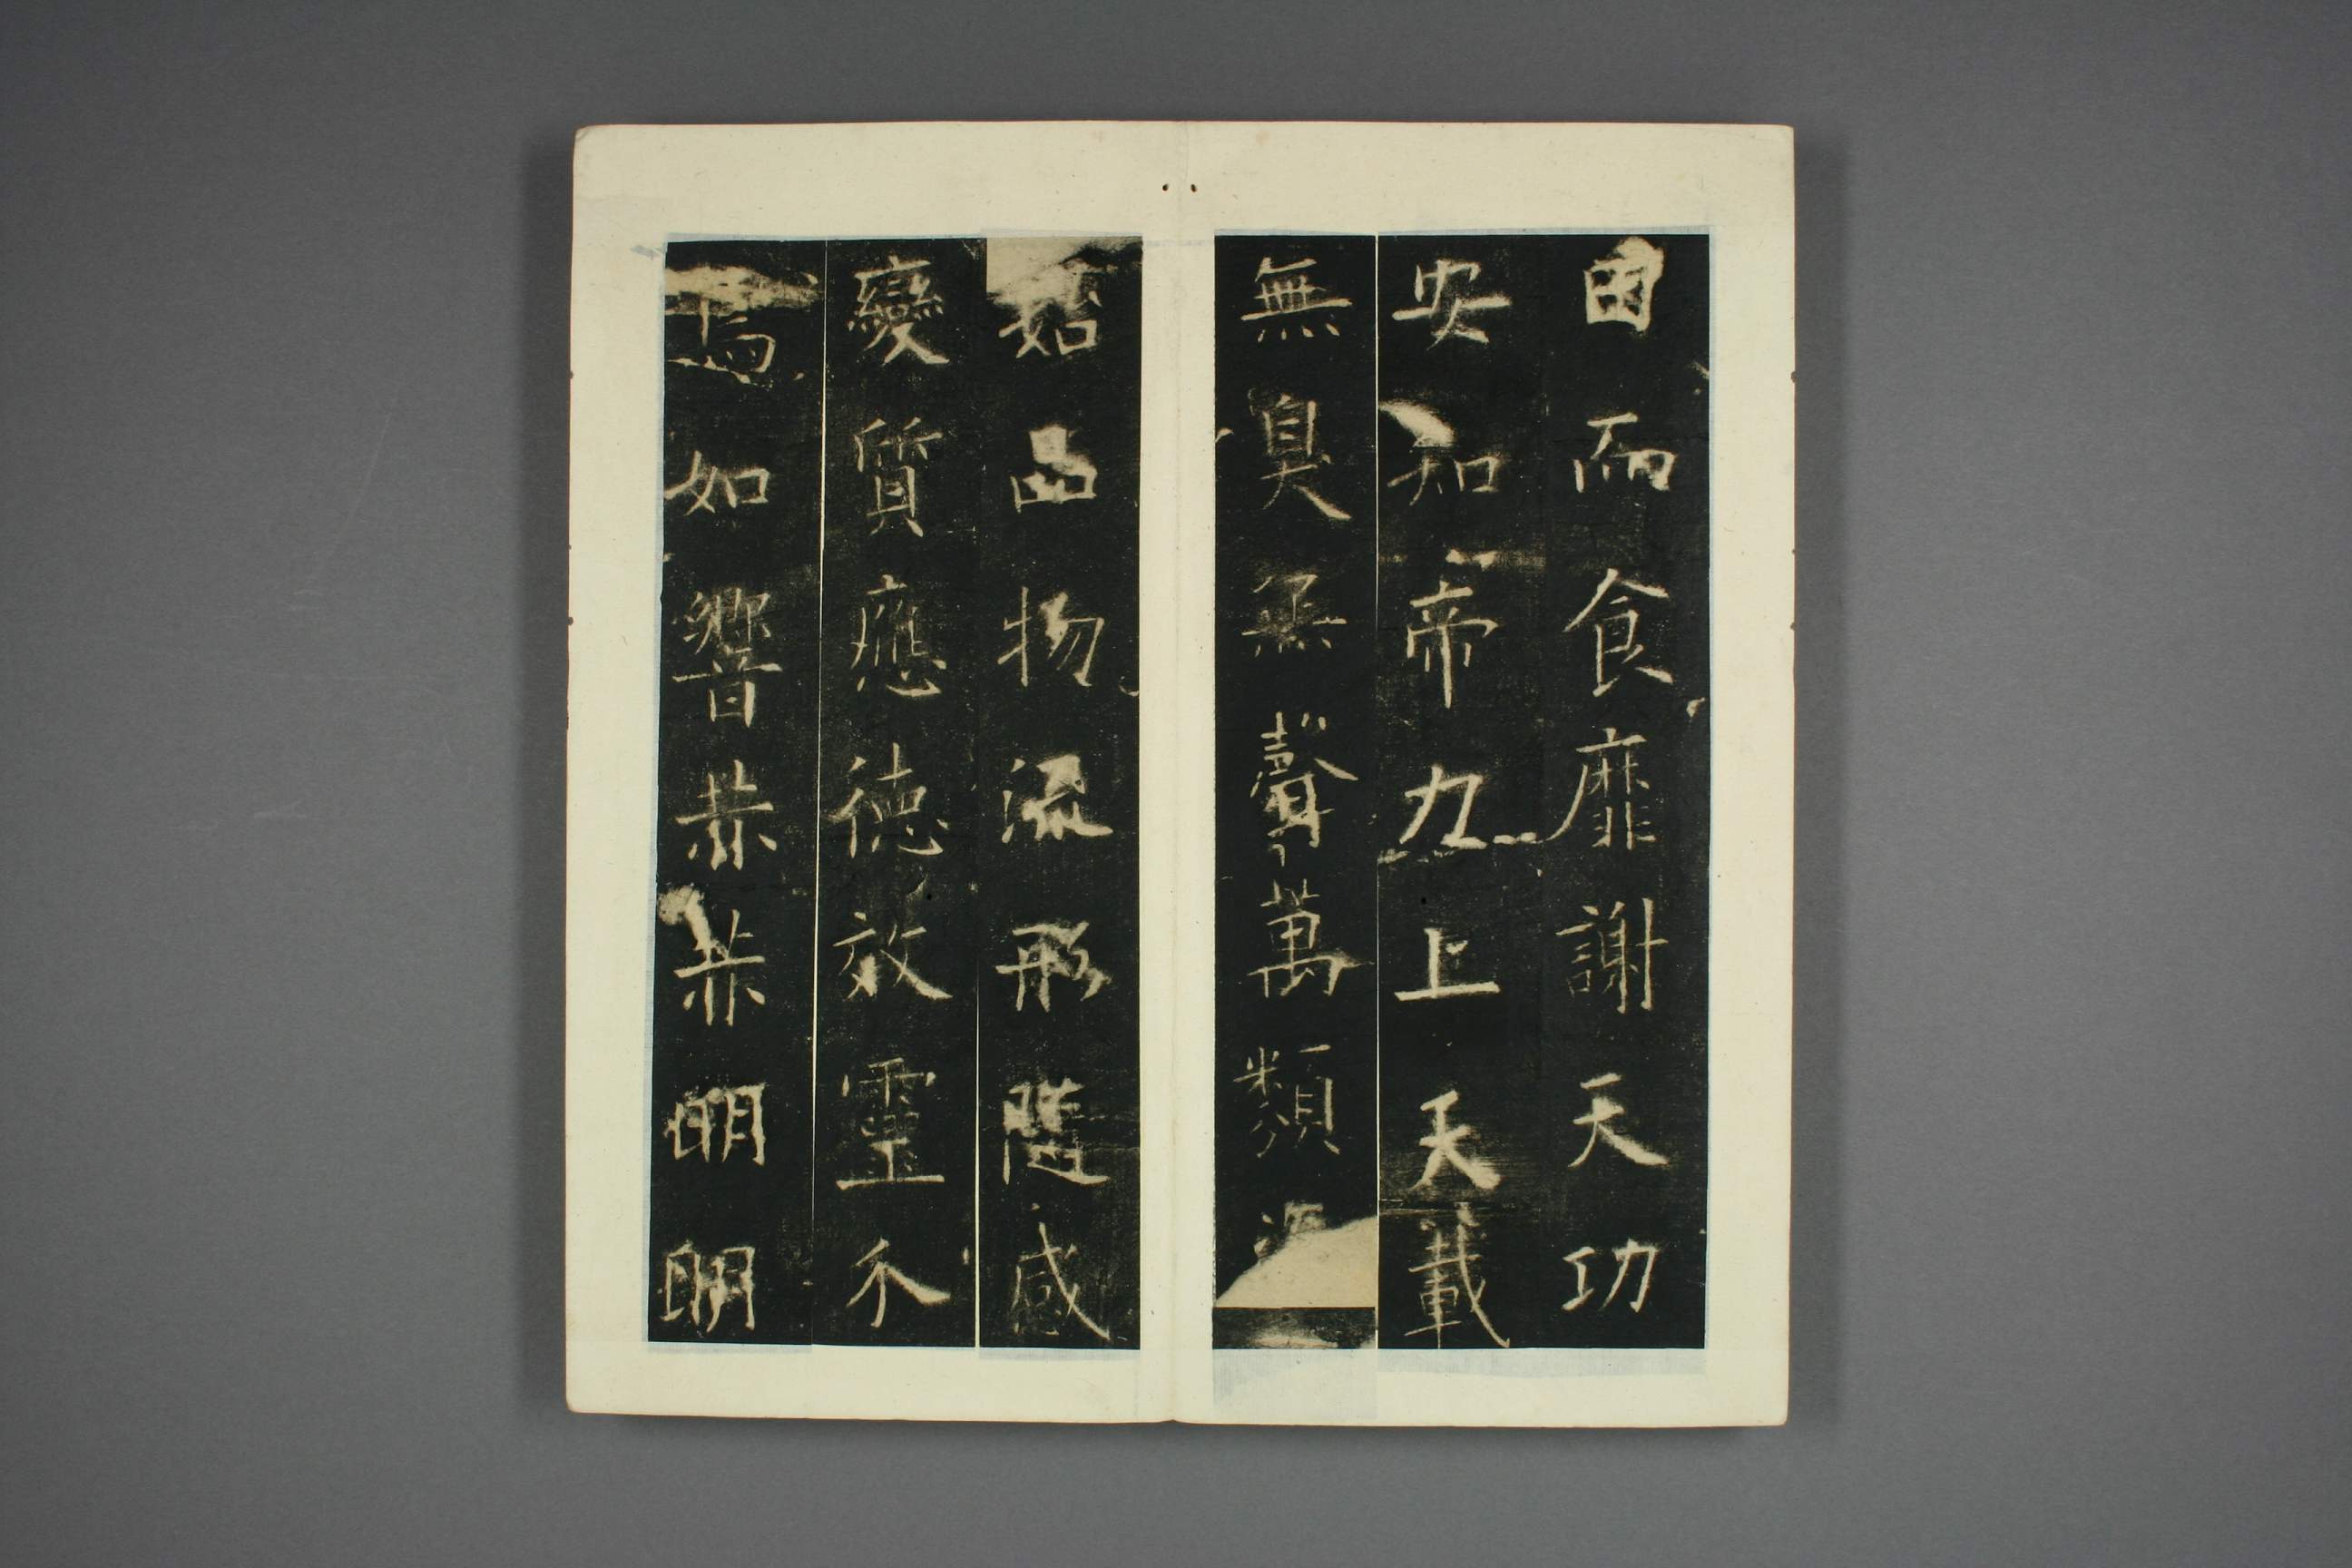 田而食靡謝天功
安知帝力上天載
無臭無聲萬類
始品物流形隨感
變質應德效靈介
焉如響赫赫明明